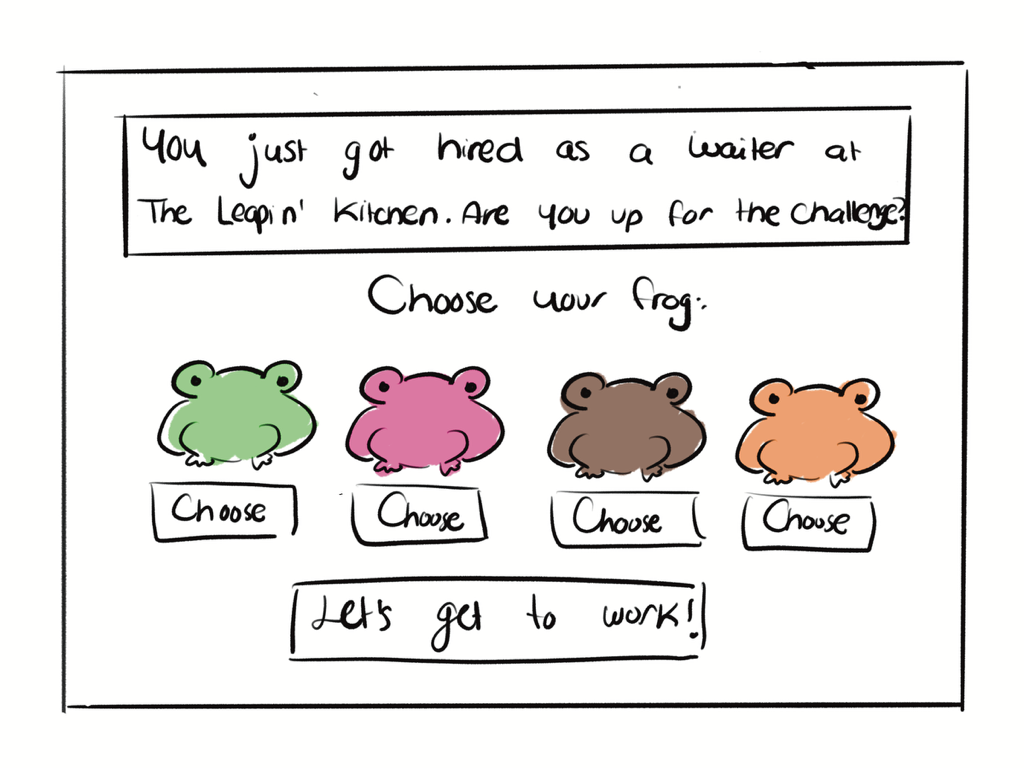 You just got hired as a waiter at
The Leapin' Kitchen. Are you up for the challenge?
Choose your frog:
Choose Choose Choose Choose
Let's get to work!